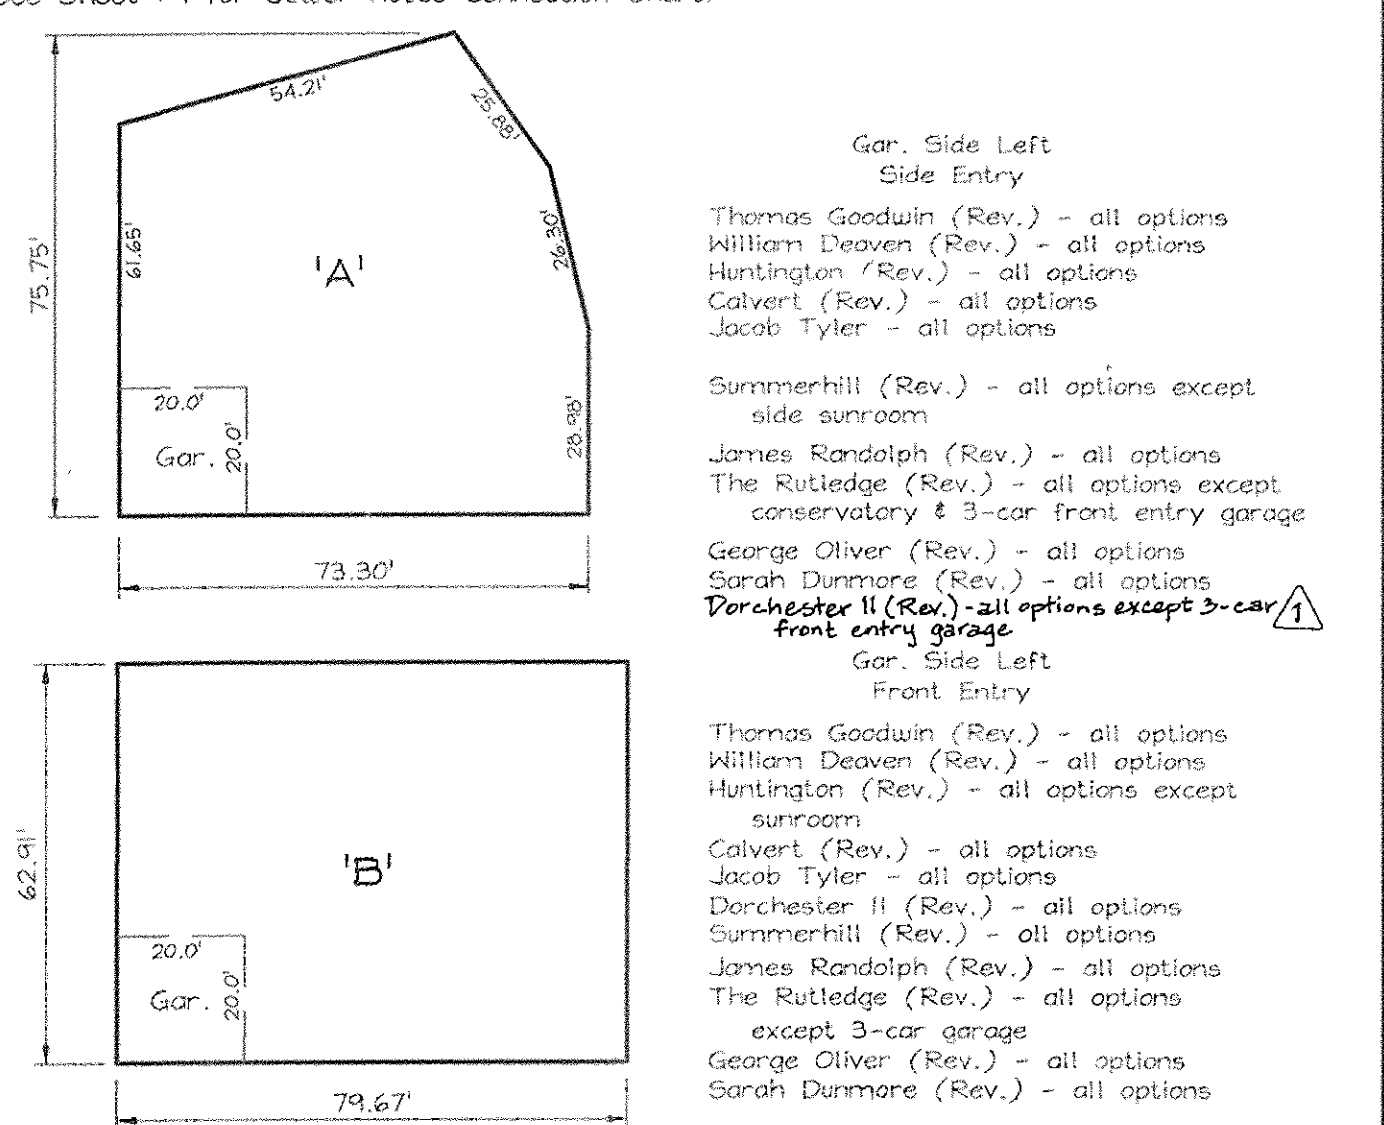 54.21'
25.88'
75.75'
61.65'
'A'
26.30'
20.0'
20.0'
Gar.
28.98'
73.30'
Gar. Side Left
Side Entry
Thomas Goodwin (Rev.) - all options
William Deaven (Rev.) - all options
Huntington (Rev.) - all options
Calvert (Rev.) - all options
Jacob Tyler - all options
Summerhill (Rev.) - all options except
side sunroom
James Randolph (Rev.) - all options
The Rutledge (Rev.) - all options except
conservatory & 3-car front entry garage
George Oliver (Rev.) - all options
Sarah Dunmore (Rev.) - all options
Dorchester II (Rev.) - all options except 3-car 1
front entry garage
62.91'
'B'
20.0'
20.0'
Gar.
79.67'
Gar. Side Left
Front Entry
Thomas Goodwin (Rev.) - all options
William Deaven (Rev.) - all options
Huntington (Rev.) - all options except
sunroom
Calvert (Rev.) - all options
Jacob Tyler - all options
Dorchester II (Rev.) - all options
Summerhill (Rev.) - all options
James Randolph (Rev.) - all options
The Rutledge (Rev.) - all options
except 3-car garage
George Oliver (Rev.) - all options
Sarah Dunmore (Rev.) - all options